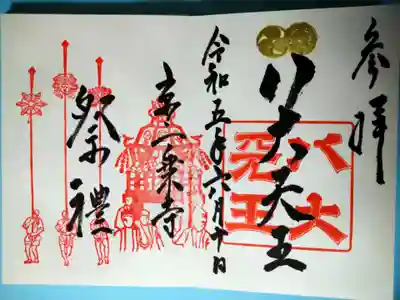 參拜
八大天王
八大天王
令和五年六月十日
京一乗寺
祭禮